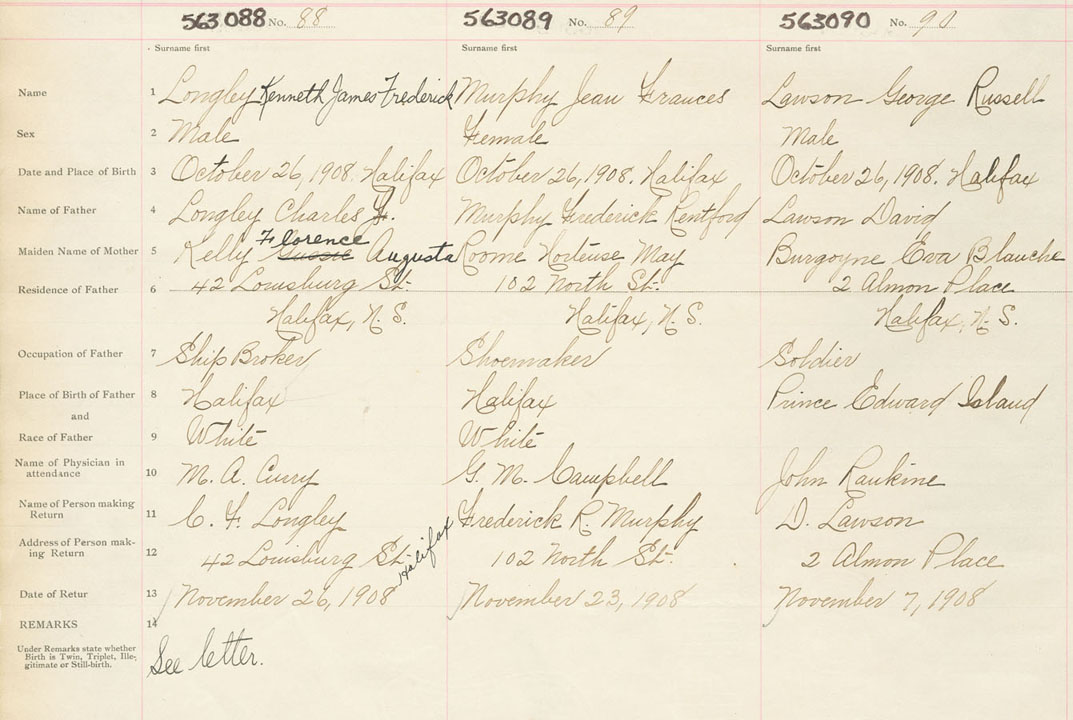 563088 No. 88 563089 No. 89 563090 No. 90
Surname first Surname first Surname first
Name 1 Longley Kenneth James Frederick Murphy Jean Frances Lawson George Russell
Sex 2 Male Female Male
Date and Place of Birth 3 October 26, 1908. Halifax October 26, 1908. Halifax October 26, 1908. Halifax
Name of Father 4 Longley Charles F. Murphy Frederick Rentford Lawson David
Florence
Maiden Name of Mother 5 Kelly Gussie Augusta Roome Hortense May Burgoyne Eva Blanche
Residence of Father 6 42 Louisburg St. 102 North St. 2 Almon Place
Halifax, N. S. Halifax, N. S. Halifax, N. S.
Occupation of Father 7 Ship Broker Shoemaker Soldier
Place of Birth of Father 8 Halifax Halifax Prince Edward Island
and
Race of Father 9 White White
Name of Physician in
attendance 10 M. A. Curry G. M. Campbell John Rankine
Name of Person making
Return 11 C. F. Longley Frederick R. Murphy D. Lawson
Address of Person mak-
ing Return 12 42 Louisburg St. Halifax 102 North St. 2 Almon Place
Date of Retur 13 November 26, 1908 November 23, 1908 November 7, 1908
REMARKS 14
Under Remarks state whether
Birth is Twin, Triplet, Ille-
gitimate or Still-birth.
See letter.